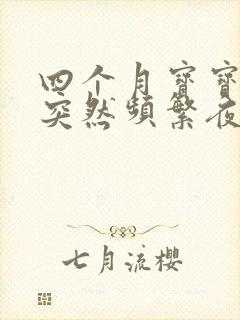 四个月寶寶
突然頻繁夜
七月流櫻